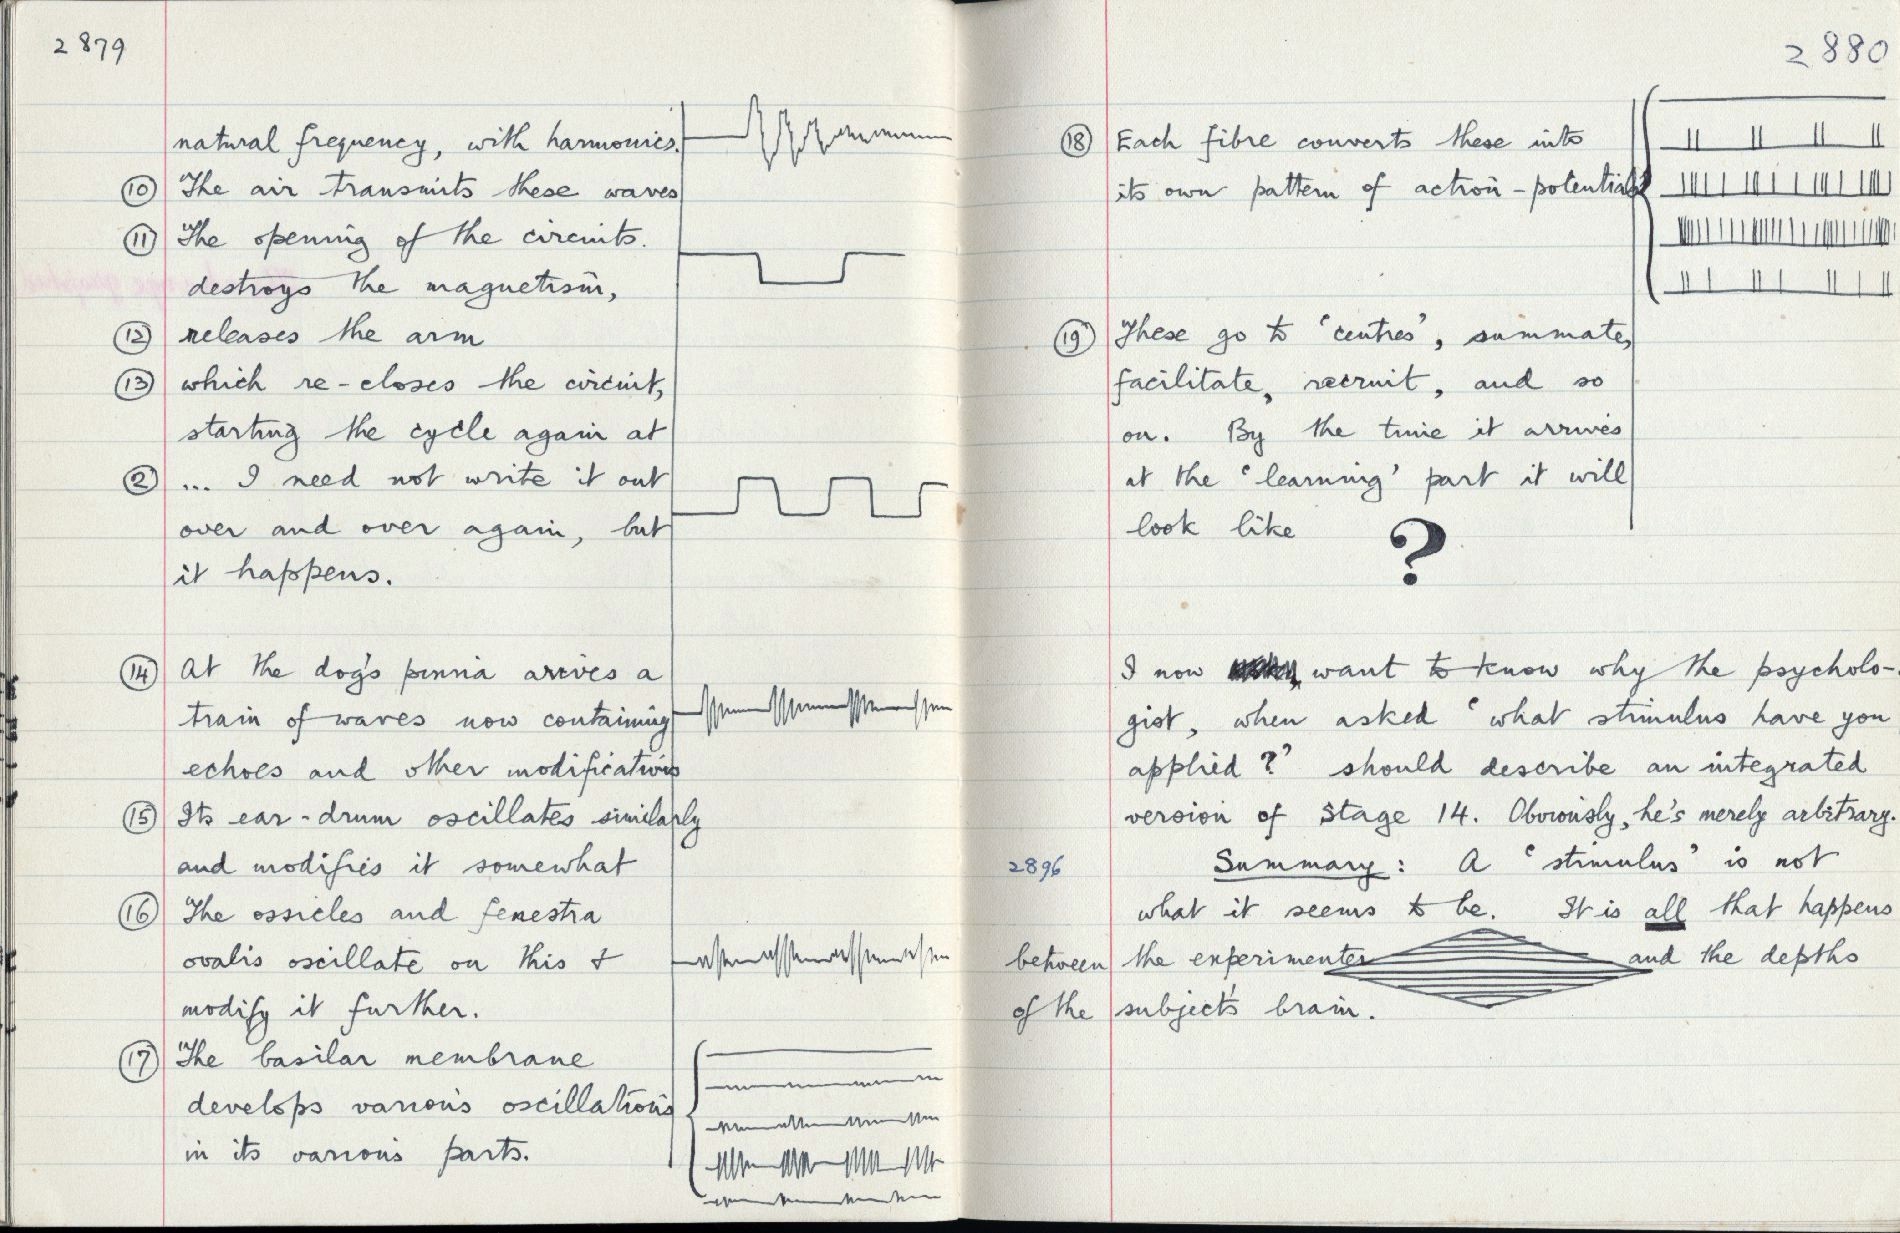 2879
natural frequency, with harmonics.
⑩ The air transmits these waves
⑪ The opening of the circuits.
destroys the magnetism,
⑫ releases the arm
⑬ which re-closes the circuit,
starting the cycle again at
② ... I need not write it out
over and over again, but
it happens.
⑭ At the dog's pinna arrives a
train of waves now containing
echoes and other modifications
⑮ Its ear-drum oscillates similarly
and modifies it somewhat
⑯ The ossicles and fenestra
ovalis oscillate on this &
modify it further.
⑰ The basilar membrane
develops various oscillations
in its various parts.
2880
⑱ Each fibre converts these into
its own pattern of action-potentials
⑲ These go to 'centres', summate,
facilitate, recruit, and so
on. By the time it arrives
at the 'learning' part it will
look like
?
I now want to know why the psycholo-
gist, when asked 'what stimulus have you
applied?' should describe an integrated
version of Stage 14. Obviously, he's merely arbitrary.
2896 Summary: A 'stimulus' is not
what it seems to be. It is all that happens
between the experimenter and the depths
of the subject's brain.